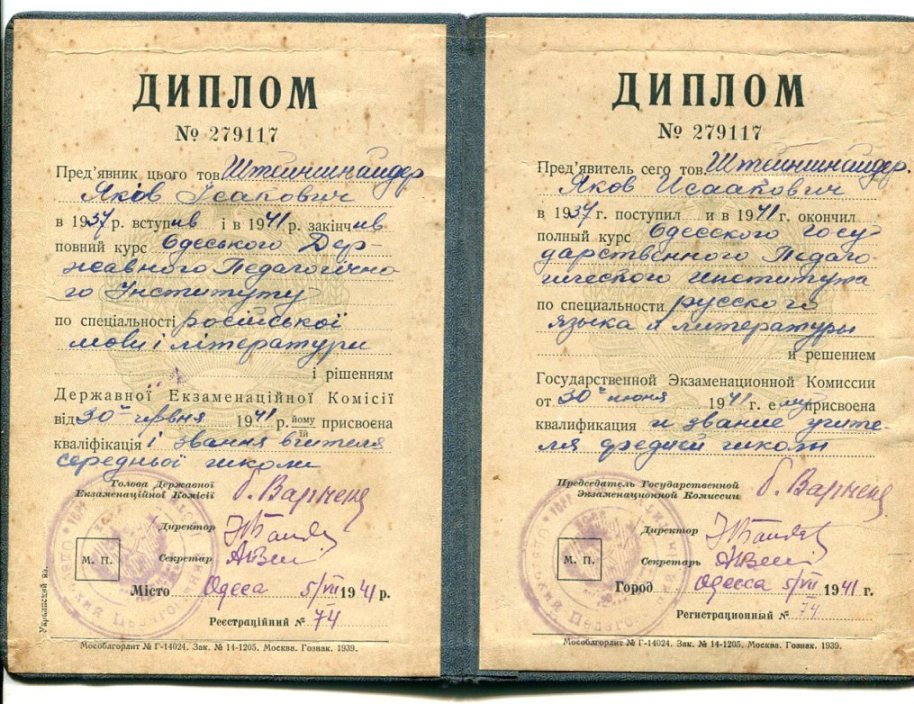 ДИПЛОМ
№ 279117
Пред'явник цього тов. Штейншнайдер
Яків Ісакович
в 1937 р. вступив і в 1941 р. закінчив
повний курс Одеського Дер-
жавного Педагогічно-
го Інституту
по спеціальності російської
мови і літератури
і рішенням
Державної Екзаменаційної Комісії
від 30 червня 1941 р. йому/їй присвоєна
кваліфікація і звання вчителя
середньої школи
Голова Державної
Екзаменаційної Комісії
Директор
Секретар
М. П.
Місто Одеса 5/VII 1941 р.
Реєстраційний № 74
Український яз.
Мособлгорлит № Г-14024. Зак. № 14-1205. Москва. Гознак. 1939.
ДИПЛОМ
№ 279117
Пред'явитель сего тов. Штейншнайдер.
Яков Исаакович
в 1937 г. поступил и в 1941 г. окончил
полный курс Одесского Госу-
дарственного Педаго-
гического института
по специальности русского
языка и литературы
и решением
Государственной Экзаменационной Комиссии
от 30 июня 1941 г. ему присвоена
квалификация и звание учите-
ля средней школы
Председатель Государственной
Экзаменационной Комиссии
Директор
Секретарь
М. П.
Город Одесса 5/VII 1941 г.
Регистрационный № 74
Мособлгорлит № Г-14024. Зак. № 14-1205. Москва. Гознак. 1939.